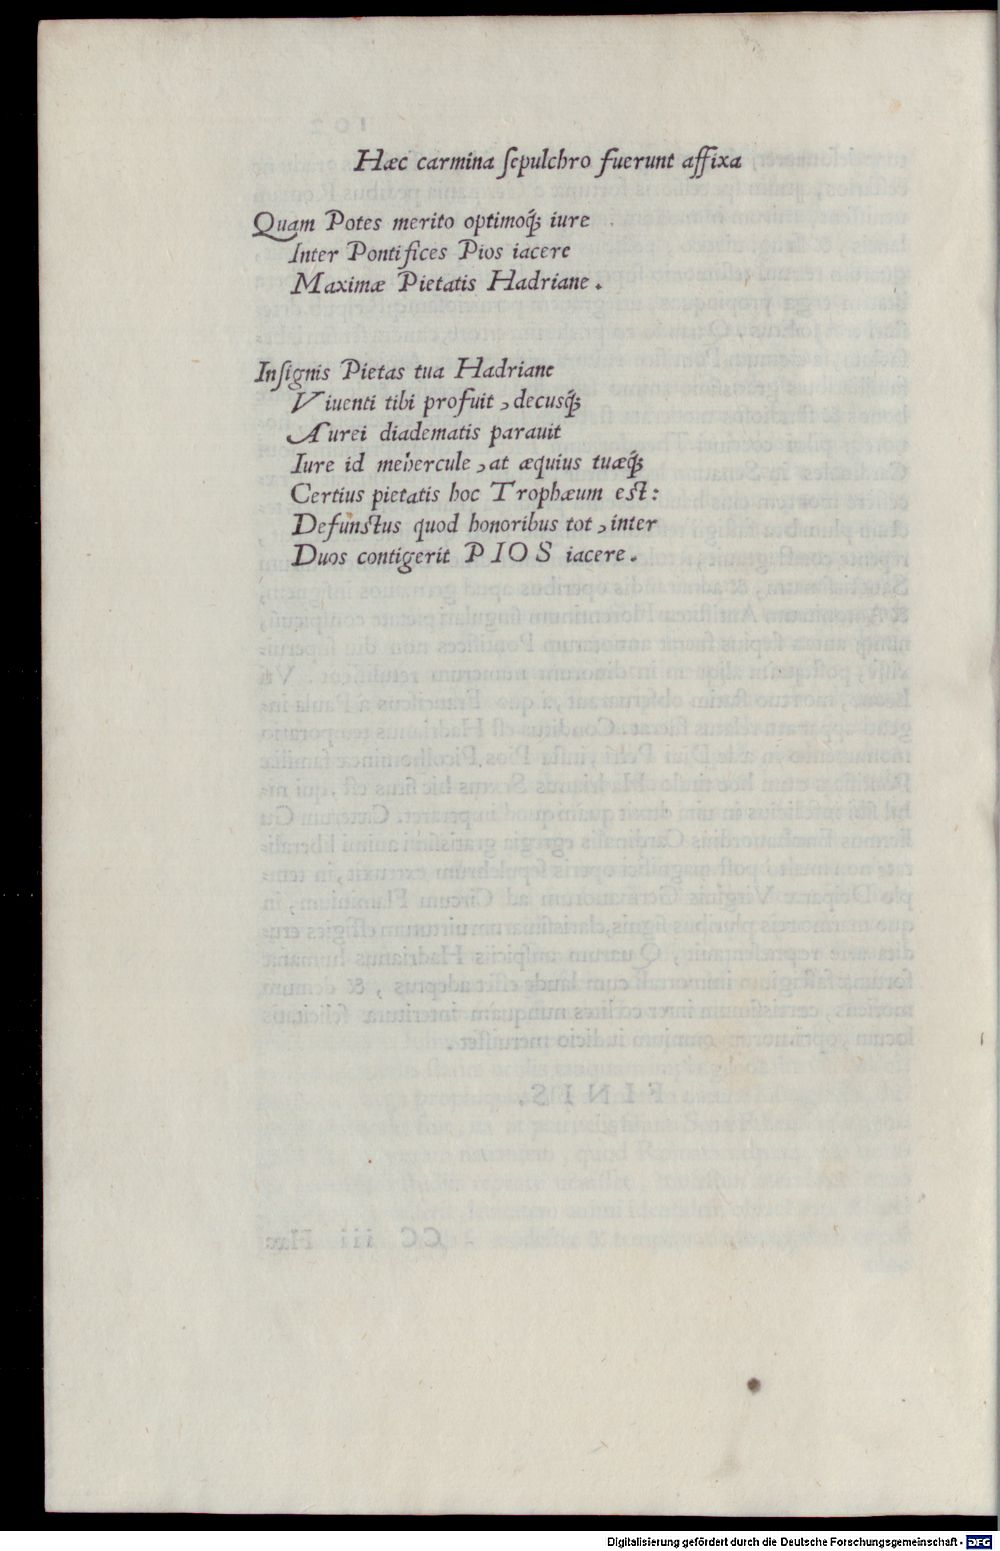 Hæc carmina ſepulchro fuerunt affixa
Quam Potes merito optimoq́; iure
Inter Pontifices Pios iacere
Maximæ Pietatis Hadriane.
Inſignis Pietas tua Hadriane
Viuenti tibi profuit, decusq́;
Aurei diadematis parauit
Iure id mehercule, at æquius tuæq́;
Certius pietatis hoc Trophæum est:
Defunctus quod honoribus tot, inter
Duos contigerit PIOS iacere.
Digitalisierung gefördert durch die Deutsche Forschungsgemeinschaft - DFG